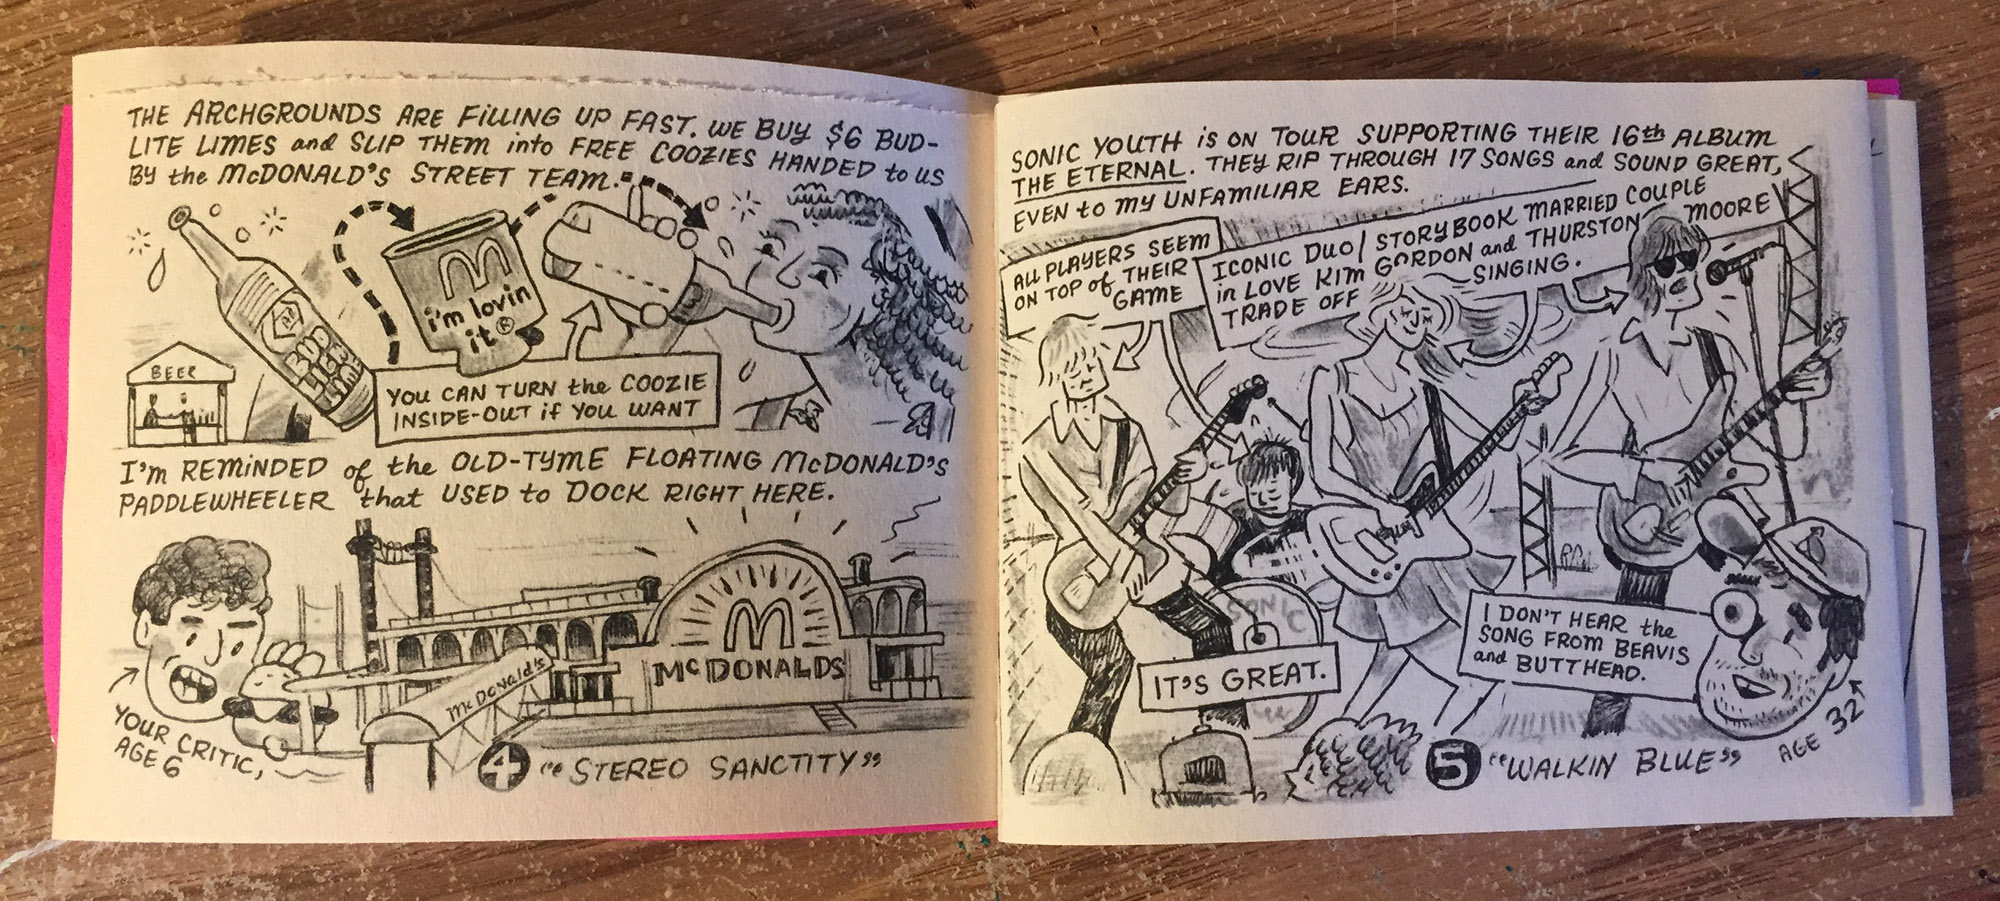 THE ARCHGROUNDS ARE FILLING UP FAST. WE BUY $6 BUD-
LITE LIMES and SLIP THEM into FREE COOZIES HANDED to US
BY the McDONALD'S STREET TEAM.
BUD
LIGHT
LIME
i'm lovin
it®
BEER
YOU CAN TURN the COOZIE
INSIDE-OUT if YOU WANT
I'm REMINDED of the OLD-TYME FLOATING McDONALD'S
PADDLEWHEELER that USED to DOCK RIGHT HERE.
McDONALDS
McDonald's
YOUR CRITIC,
AGE 6
4 "STEREO SANCTITY"
SONIC YOUTH is ON TOUR SUPPORTING THEIR 16th ALBUM
THE ETERNAL. THEY RIP THROUGH 17 SONGS and SOUND GREAT,
EVEN to MY UNFAMILIAR EARS.
ALL PLAYERS SEEM
ON TOP of THEIR
GAME
ICONIC DUO/STORYBOOK MARRIED COUPLE
in LOVE KIM GORDON and THURSTON MOORE
TRADE OFF SINGING.
SONIC
IT'S GREAT.
I DON'T HEAR the
SONG FROM BEAVIS
and BUTTHEAD.
AGE 32
5 "WALKIN BLUE"